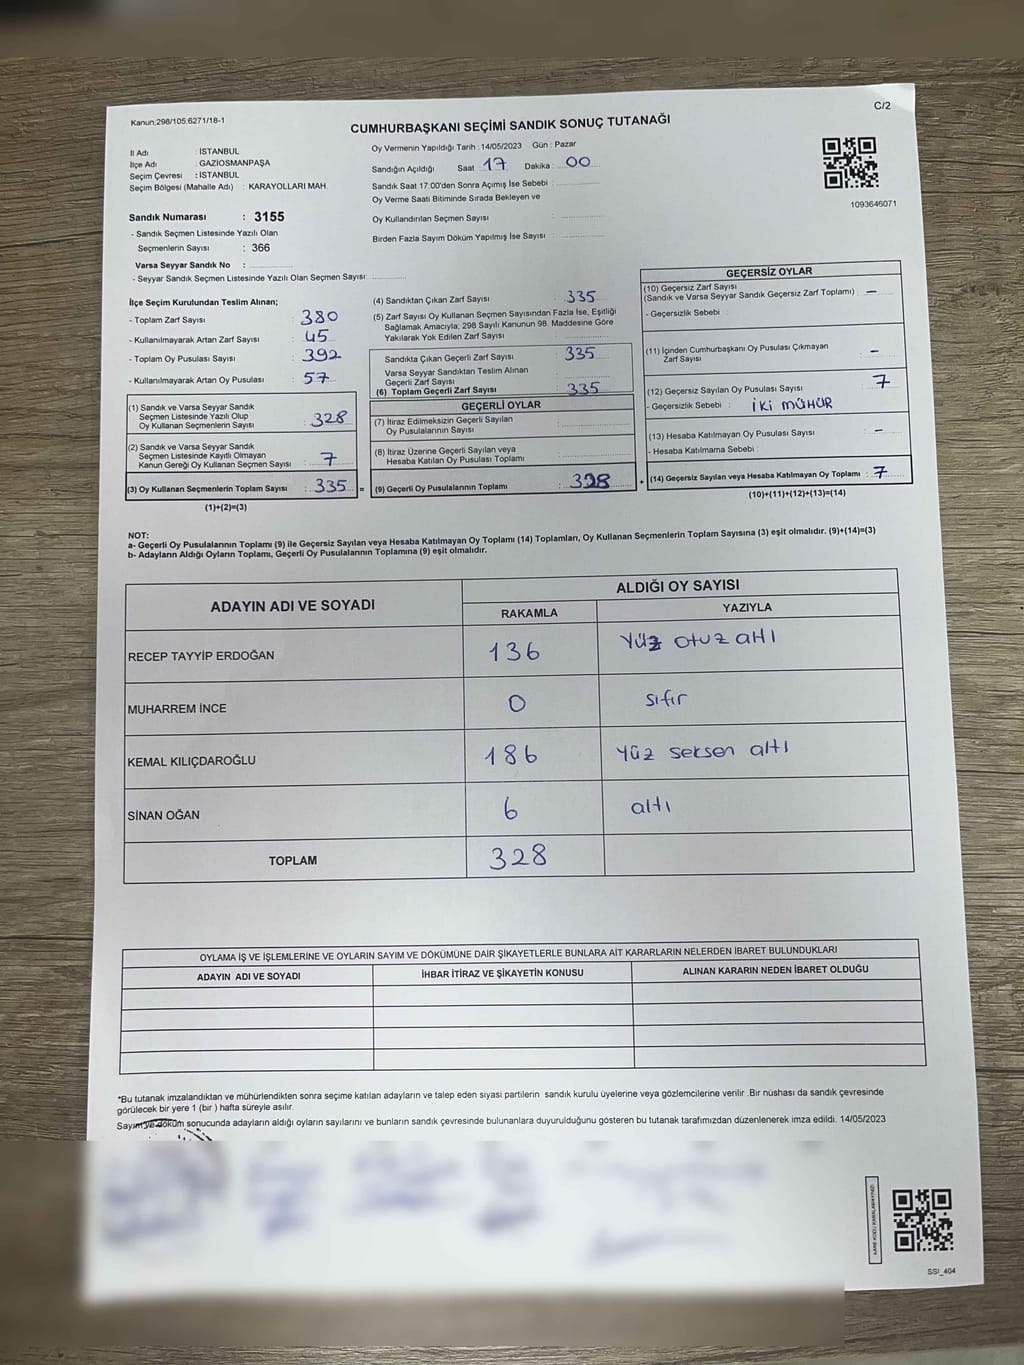 Kanun:298/105;6271/18-1
C/2
CUMHURBAŞKANI SEÇİMİ SANDIK SONUÇ TUTANAĞI
İl Adı : İSTANBUL
İlçe Adı : GAZİOSMANPAŞA
Seçim Çevresi : İSTANBUL
Seçim Bölgesi (Mahalle Adı) : KARAYOLLARI MAH.
Oy Vermenin Yapıldığı Tarih :14/05/2023 Gün : Pazar
Sandığın Açıldığı Saat : 17 Dakika : 00
Sandık Saat 17:00'den Sonra Açımış İse Sebebi :
Oy Verme Saati Bitiminde Sırada Bekleyen ve
Oy Kullandırılan Seçmen Sayısı :
Birden Fazla Sayım Döküm Yapılmış İse Sayısı :
1093646071
Sandık Numarası : 3155
- Sandık Seçmen Listesinde Yazılı Olan
Seçmenlerin Sayısı : 366
Varsa Seyyar Sandık No :
- Seyyar Sandık Seçmen Listesinde Yazılı Olan Seçmen Sayısı:
İlçe Seçim Kurulundan Teslim Alınan;
- Toplam Zarf Sayısı : 380
- Kullanılmayarak Artan Zarf Sayısı : 45
- Toplam Oy Pusulası Sayısı : 392
- Kullanılmayarak Artan Oy Pusulası : 57
(1) Sandık ve Varsa Seyyar Sandık
Seçmen Listesinde Yazılı Olup
Oy Kullanan Seçmenlerin Sayısı : 328
(2) Sandık ve Varsa Seyyar Sandık
Seçmen Listesinde Kayıtlı Olmayan
Kanun Gereği Oy Kullanan Seçmen Sayısı : 7
(3) Oy Kullanan Seçmenlerin Toplam Sayısı : 335 =
(1)+(2)=(3)
(4) Sandıktan Çıkan Zarf Sayısı : 335
(5) Zarf Sayısı Oy Kullanan Seçmen Sayısından Fazla İse, Eşitliği
Sağlamak Amacıyla; 298 Sayılı Kanunun 98. Maddesine Göre
Yakılarak Yok Edilen Zarf Sayısı :
Sandıkta Çıkan Geçerli Zarf Sayısı : 335
Varsa Seyyar Sandıktan Teslim Alınan
Geçerli Zarf Sayısı :
(6) Toplam Geçerli Zarf Sayısı : 335
GEÇERLİ OYLAR
(7) İtiraz Edilmeksizin Geçerli Sayılan
Oy Pusulalarının Sayısı :
(8) İtiraz Üzerine Geçerli Sayılan veya
Hesaba Katılan Oy Pusulası Toplamı :
(9) Geçerli Oy Pusulalarının Toplamı : 328 +
GEÇERSİZ OYLAR
(10) Geçersiz Zarf Sayısı
(Sandık ve Varsa Seyyar Sandık Geçersiz Zarf Toplamı) : —
- Geçersizlik Sebebi :
(11) İçinden Cumhurbaşkanı Oy Pusulası Çıkmayan
Zarf Sayısı : —
(12) Geçersiz Sayılan Oy Pusulası Sayısı : 7
- Geçersizlik Sebebi : İKİ MÜHÜR
(13) Hesaba Katılmayan Oy Pusulası Sayısı : —
- Hesaba Katılmama Sebebi :
(14) Geçersiz Sayılan veya Hesaba Katılmayan Oy Toplamı : 7
(10)+(11)+(12)+(13)=(14)
NOT:
a- Geçerli Oy Pusulalarının Toplamı (9) ile Geçersiz Sayılan veya Hesaba Katılmayan Oy Toplamı (14) Toplamları, Oy Kullanan Seçmenlerin Toplam Sayısına (3) eşit olmalıdır. (9)+(14)=(3)
b- Adayların Aldığı Oyların Toplamı, Geçerli Oy Pusulalarının Toplamına (9) eşit olmalıdır.
ADAYIN ADI VE SOYADI
ALDIĞI OY SAYISI
RAKAMLA YAZIYLA
RECEP TAYYİP ERDOĞAN 136 Yüz otuz altı
MUHARREM İNCE 0 sıfır
KEMAL KILIÇDAROĞLU 186 Yüz seksen altı
SİNAN OĞAN 6 altı
TOPLAM 328
OYLAMA İŞ VE İŞLEMLERİNE VE OYLARIN SAYIM VE DÖKÜMÜNE DAİR ŞİKAYETLERLE BUNLARA AİT KARARLARIN NELERDEN İBARET BULUNDUKLARI
ADAYIN ADI VE SOYADI İHBAR İTİRAZ VE ŞİKAYETİN KONUSU ALINAN KARARIN NEDEN İBARET OLDUĞU
*Bu tutanak imzalandıktan ve mühürlendikten sonra seçime katılan adayların ve talep eden siyasi partilerin sandık kurulu üyelerine veya gözlemcilerine verilir .Bir nüshası da sandık çevresinde
görülecek bir yere 1 (bir ) hafta süreyle asılır.
Sayım ve döküm sonucunda adayların aldığı oyların sayılarını ve bunların sandık çevresinde bulunanlara duyurulduğunu gösteren bu tutanak tarafımızdan düzenlenerek imza edildi. 14/05/2023
SSI_404